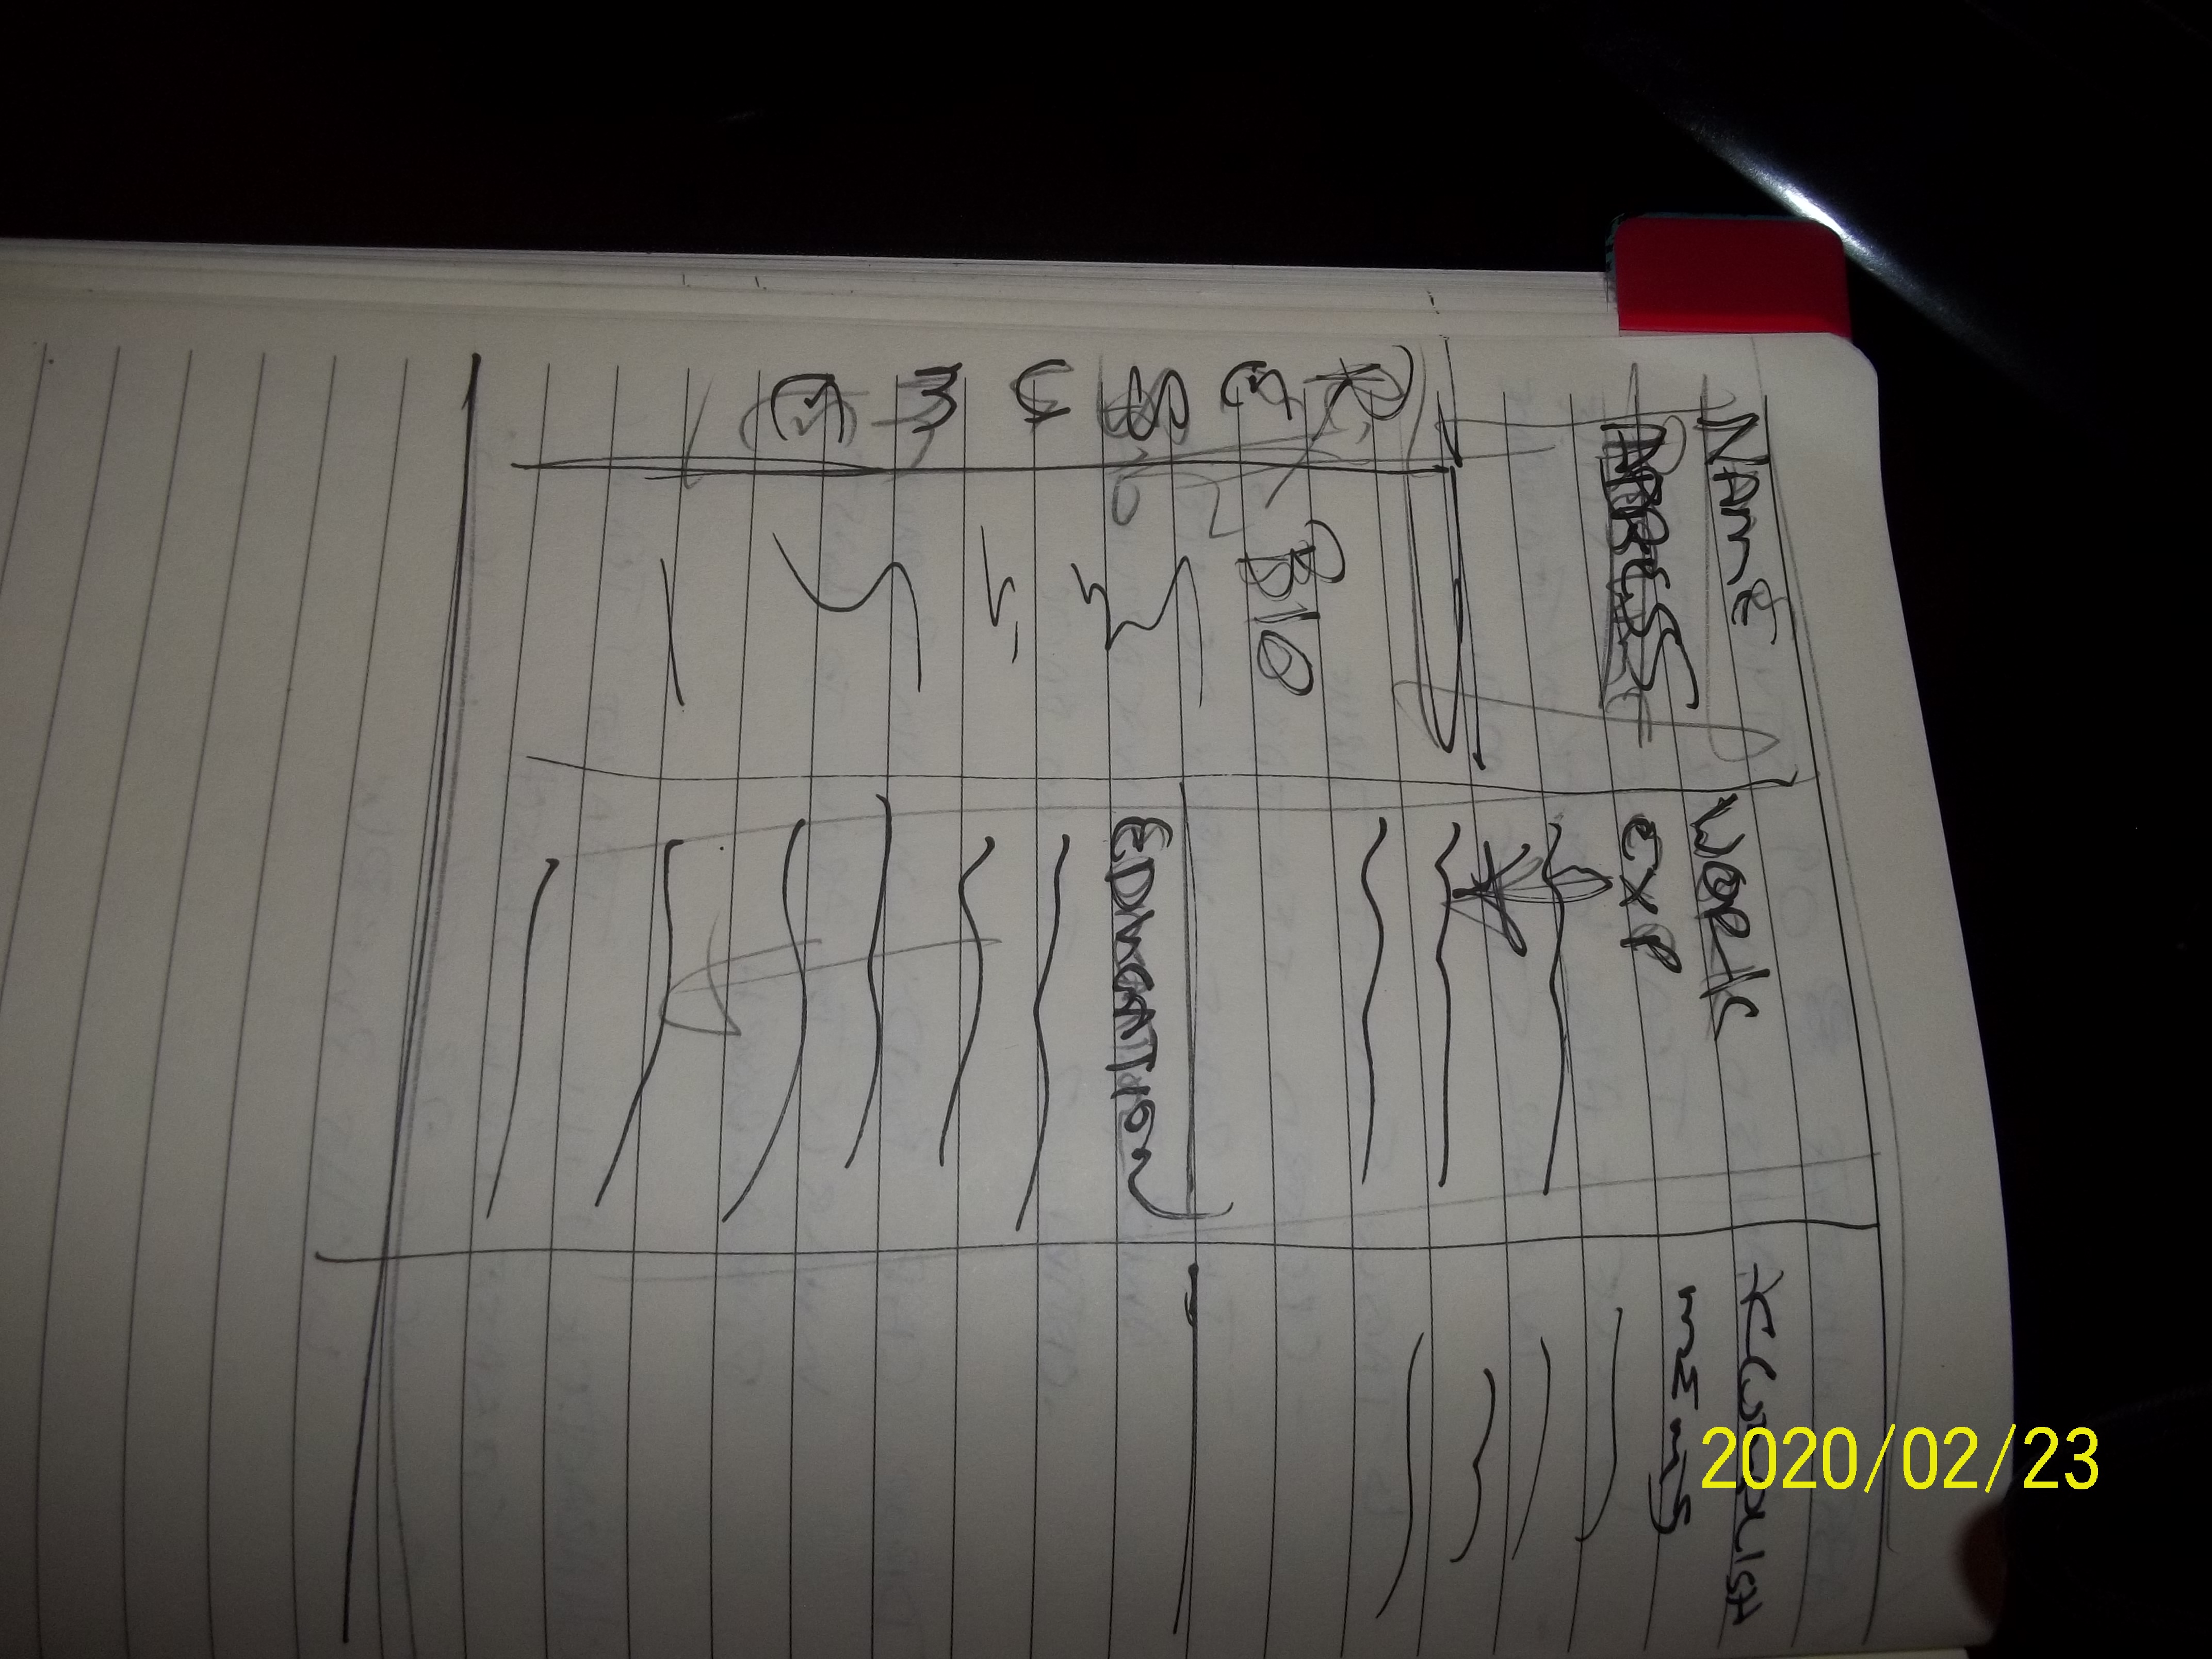 NAME
ADDRESS
R
E
S
U
M
E
BIO
WORK
EXP
EDUCATION
ACCOMPLISH
MENTS
2020/02/23